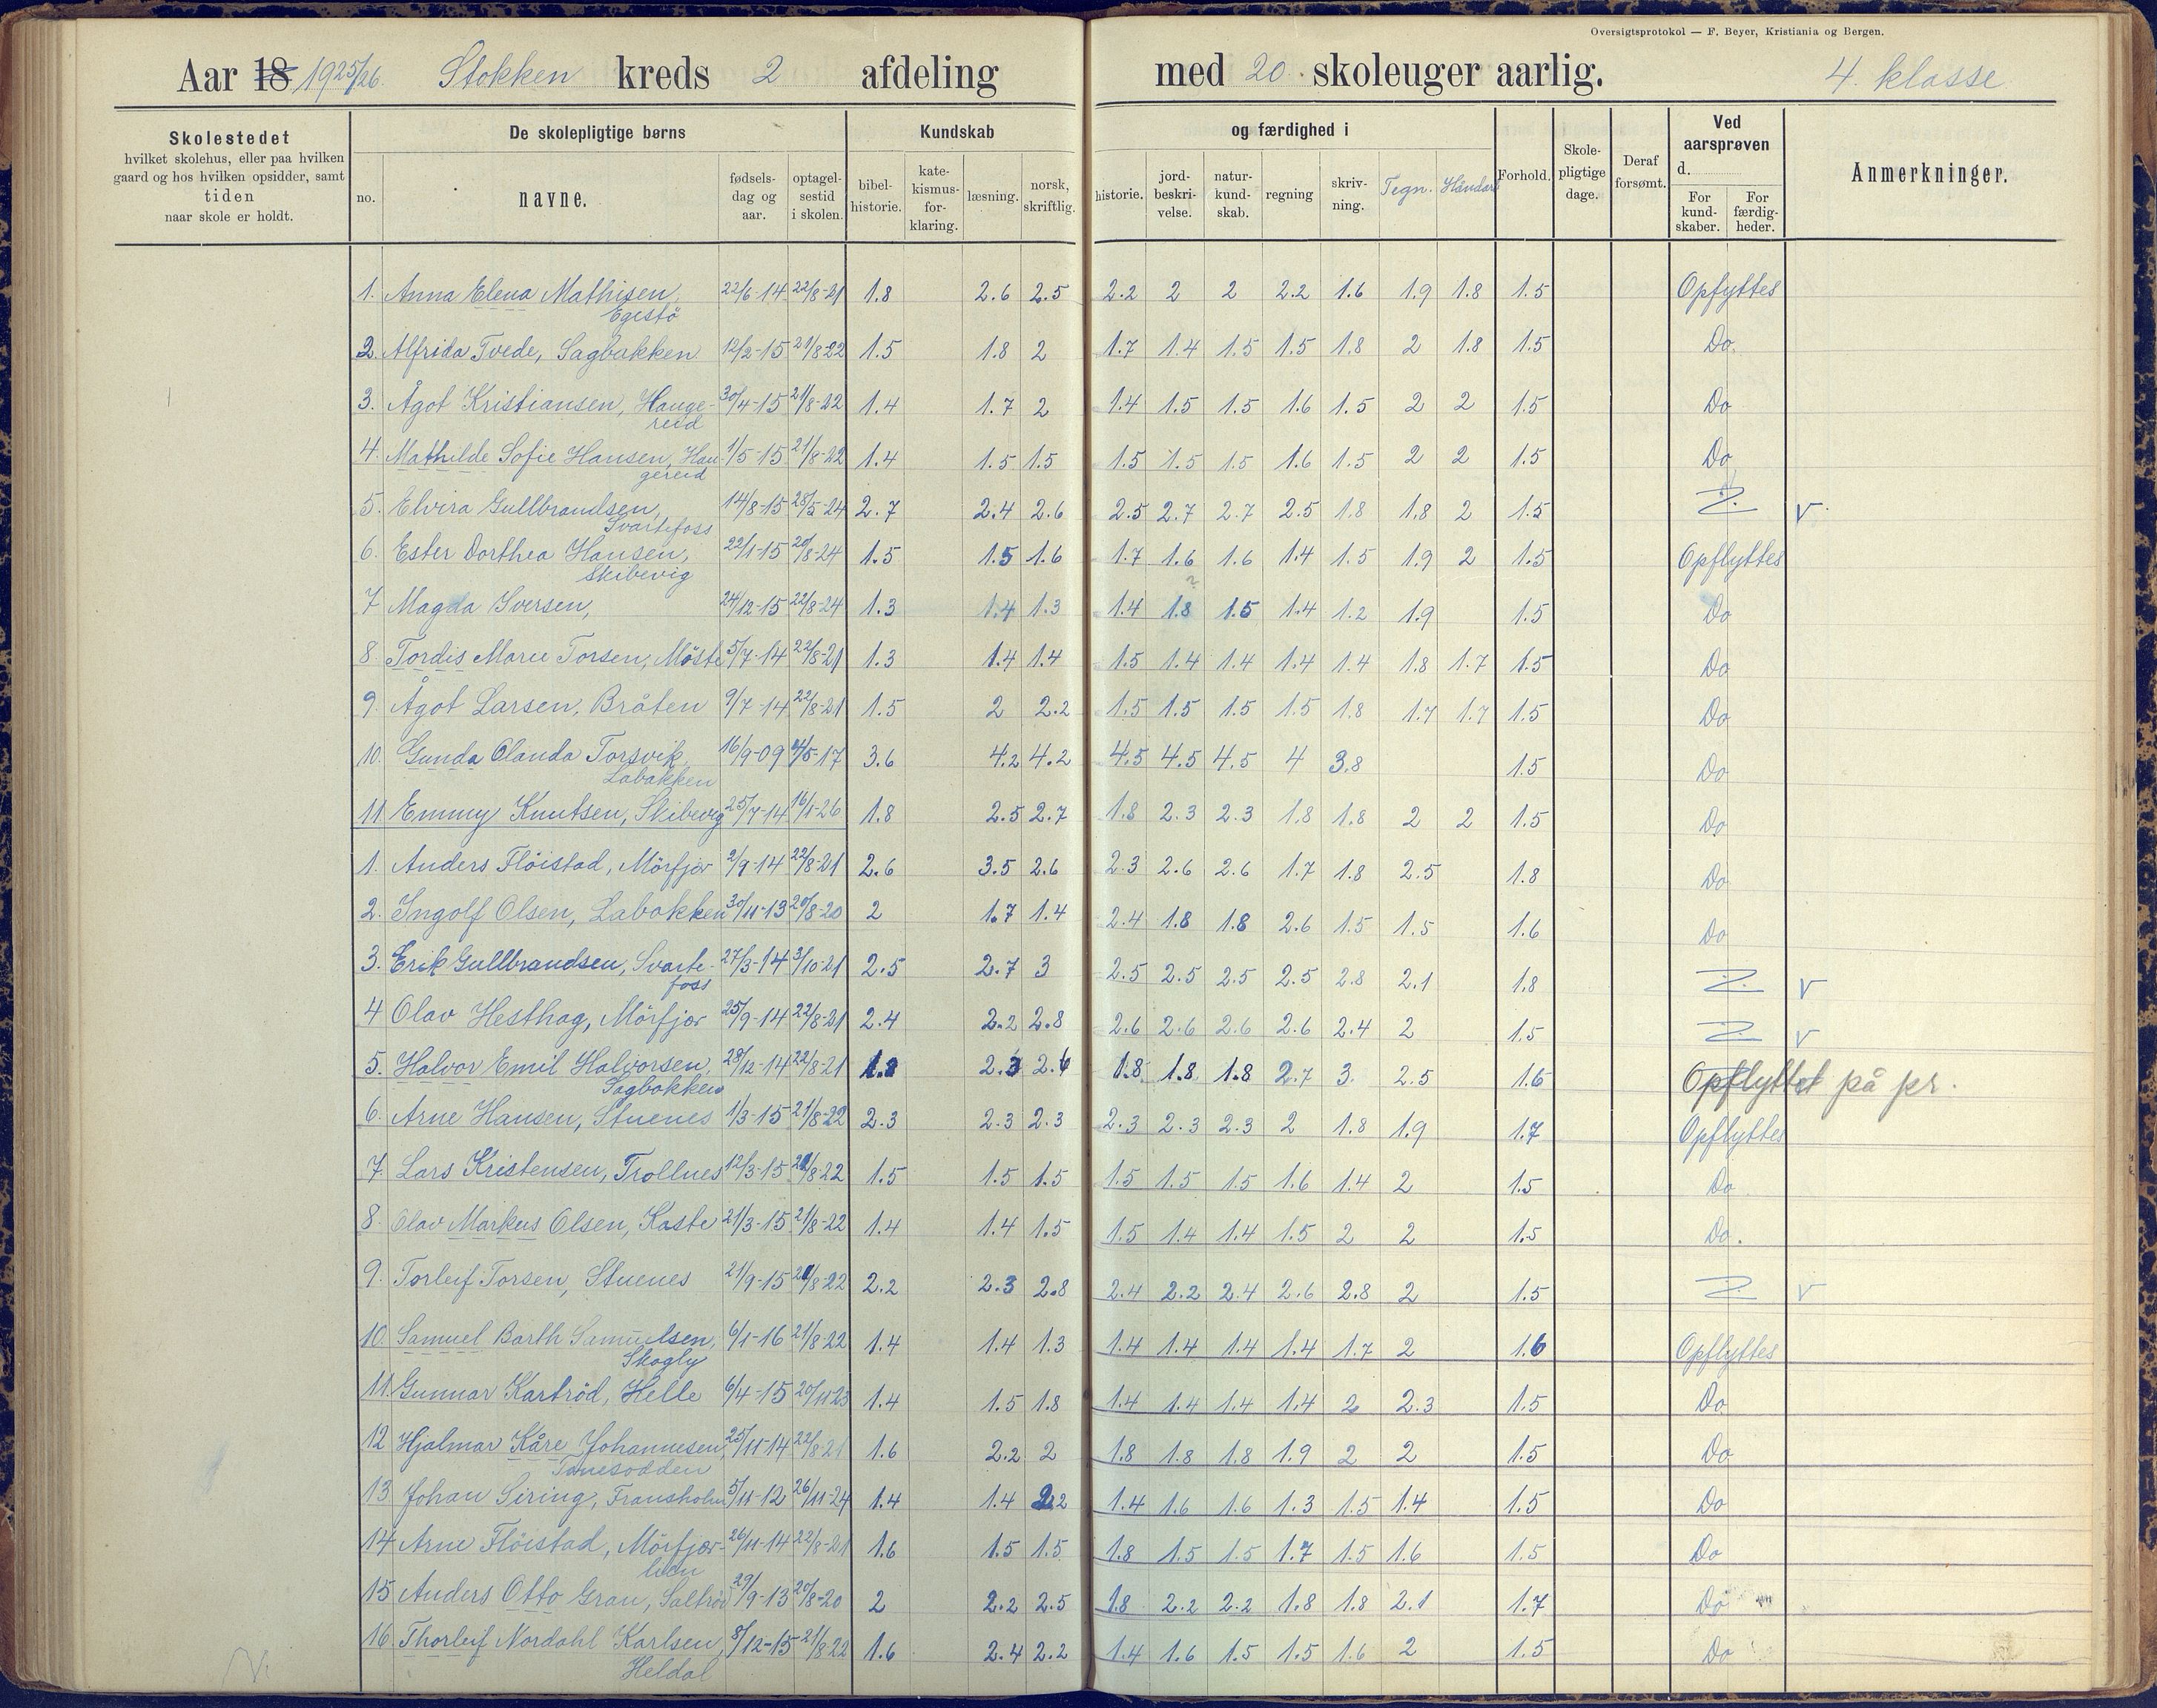 Oversigtsprotokol — F. Beyer, Kristiania og Bergen.
Aar 18 1925/26. Stokken kreds 2 afdeling med 20 skoleuger aarlig. 4. klasse
Skolestedet
hvilket skolehus, eller paa hvilken
gaard og hos hvilken opsidder, samt
tiden
naar skole er holdt.
De skolepligtige børns
no.
navne.
fødsels-
dag og
aar.
optagel-
sestid
i skolen.
Kundskab
bibel-
historie.
kate-
kismus-
for-
klaring.
læsning.
norsk,
skriftlig.
og færdighed i
historie.
jord-
beskri-
velse.
natur-
kund-
skab.
regning
skriv-
ning.
Tegn.
Håndar
Forhold.
Skole-
pligtige
dage.
Deraf
forsømt.
Ved
aarsprøven
d.
For
kund-
skaber.
For
færdig-
heder.
Anmerkninger.
1. Anna Elena Mathisen, 22/6-14 22/8-21 1.8 2.6 2.5 2.2 2 2 2.2 1.6 1.9 1.8 1.5 Opfyttes
Egestö
2. Alfrida Tvede, Sagbakken 12/2-15 21/8-22 1.5 1.8 2 1.7 1.4 1.5 1.5 1.8 2 1.8 1.5 Do.
3. Ågot Kristiansen, Hauge- 30/4-15 21/8-22 1.4 1.7 2 1.4 1.5 1.5 1.6 1.5 2 2 1.5 Do
reid
4. Mathilde Sofie Hansen, Hau- 1/5-15 21/8-22 1.4 1.5 1.5 1.5 1.5 1.5 1.6 1.5 2 2 1.5 Do
gereid
5. Elvira Gullbrandsen, 14/8-15 28/5-24 2.7 2.4 2.6 2.5 2.7 2.7 2.5 1.8 1.8 2 1.5 V
Svartefoss
6. Ester Dorthea Hansen, 22/1-15 20/8-24 1.5 1.5 1.6 1.7 1.6 1.6 1.4 1.5 1.9 2 1.5 Opflyttes
Skibevig
7 Magda Iversen, 24/12-15 22/8-24 1.3 1.4 1.3 1.4 1.8 1.5 1.4 1.2 1.9 1.5 Do
8. Tordis Marie Torsen, Möste 5/7-14 22/8-21 1.3 1.4 1.4 1.5 1.4 1.4 1.4 1.4 1.8 1.7 1.5 Do
9. Ågot Larsen, Bråten 9/7-14 22/8-21 1.5 2 2.2 1.5 1.5 1.5 1.5 1.8 1.7 1.7 1.5 Do
10. Gunda Olanda Torsvik, 16/9-09 4/5-17 3.6 4.2 4.2 4.5 4.5 4.5 4 3.8 1.5 Do
Labakken
11. Emmy Knutsen, Skibevig 25/7-14 16/1-26 1.8 2.5 2.7 1.8 2.3 2.3 1.8 1.8 2 2 1.5 Do
1. Anders Flöistad, Mörfjær 2/9-14 22/8-21 2.6 3.5 2.6 2.3 2.6 2.6 1.7 1.8 2.5 1.8 Do
2. Ingolf Olsen, Labakken 30/11-13 20/8-20 2 1.7 1.4 2.4 1.8 1.8 2.6 1.5 1.5 1.6 Do
3. Erik Gullbrandsen, Svarte- 27/3-14 3/10-21 2.5 2.7 3 2.5 2.5 2.5 2.5 2.8 2.1 1.8 V
foss
4 Olav Hesthag, Mörfjær 25/9-14 22/8-21 2.4 2.2 2.8 2.6 2.6 2.6 2.6 2.4 2 1.5 V
5. Halvor Emil Halvorsen, 28/12-14 22/8-21 1.8 2.3 2.6 1.8 1.8 1.8 2.7 3. 2.5 1.6 Opflyttet på pr.
Sagbakken
6. Arne Hansen, Stuenes 1/3-15 21/8-22 2.3 2.3 2.3 2.3 2.3 2.3 2 1.8 1.9 1.7 Opflyttes
7. Lars Kristensen, Trollnes 12/3-15 21/8-22 1.5 1.5 1.5 1.5 1.5 1.5 1.6 1.4 2 1.5 Do
8. Olav Markus Olsen, Kaste 21/3-15 21/8-22 1.4 1.4 1.5 1.5 1.4 1.4 1.5 2 2 1.5 Do.
9. Torleif Torsen, Stuenes 21/9-15 21/8-22 2.2 2.3 2.8 2.4 2.2 2.4 2.6 2.8 2 1.5 V
10. Samuel Barth Samuelsen, 6/1-16 21/8-22 1.4 1.4 1.3 1.4 1.4 1.4 1.4 1.7 2 1.6 Opflyttes
Skogly
11. Gunnar Karlröd, Helle 6/4-15 20/11-23 1.4 1.5 1.8 1.4 1.4 1.4 1.4 2 2.3 1.5 Do
12 Hjalmar Kåre Johannesen, 25/11-14 22/8-21 1.6 2.2 2 1.8 1.8 1.8 1.9 2 2 1.5 Do
13 Johan Siring, Fransholm 5/11-12 26/11-24 1.4 1.4 2.2 1.4 1.6 1.6 1.3 1.5 1.4 1.5 Do
14 Arne Flöistad, Mörfjær- 26/11-14 22/8-21 1.6 1.5 1.5 1.8 1.5 1.5 1.7 1.5 1.6 1.5 Do
15 Anders Otto Grau, Saltröd 29/9-13 20/8-20 2 2.2 2.5 1.8 2.2 2.2 1.8 1.8 2.1 1.7 Do
16. Thorleif Nordahl Karlsen, 8/12-15 21/8-22 1.6 2.4 2.2 1.4 1.6 1.5 1.5 1.6 2 1.5 Do
Heldal